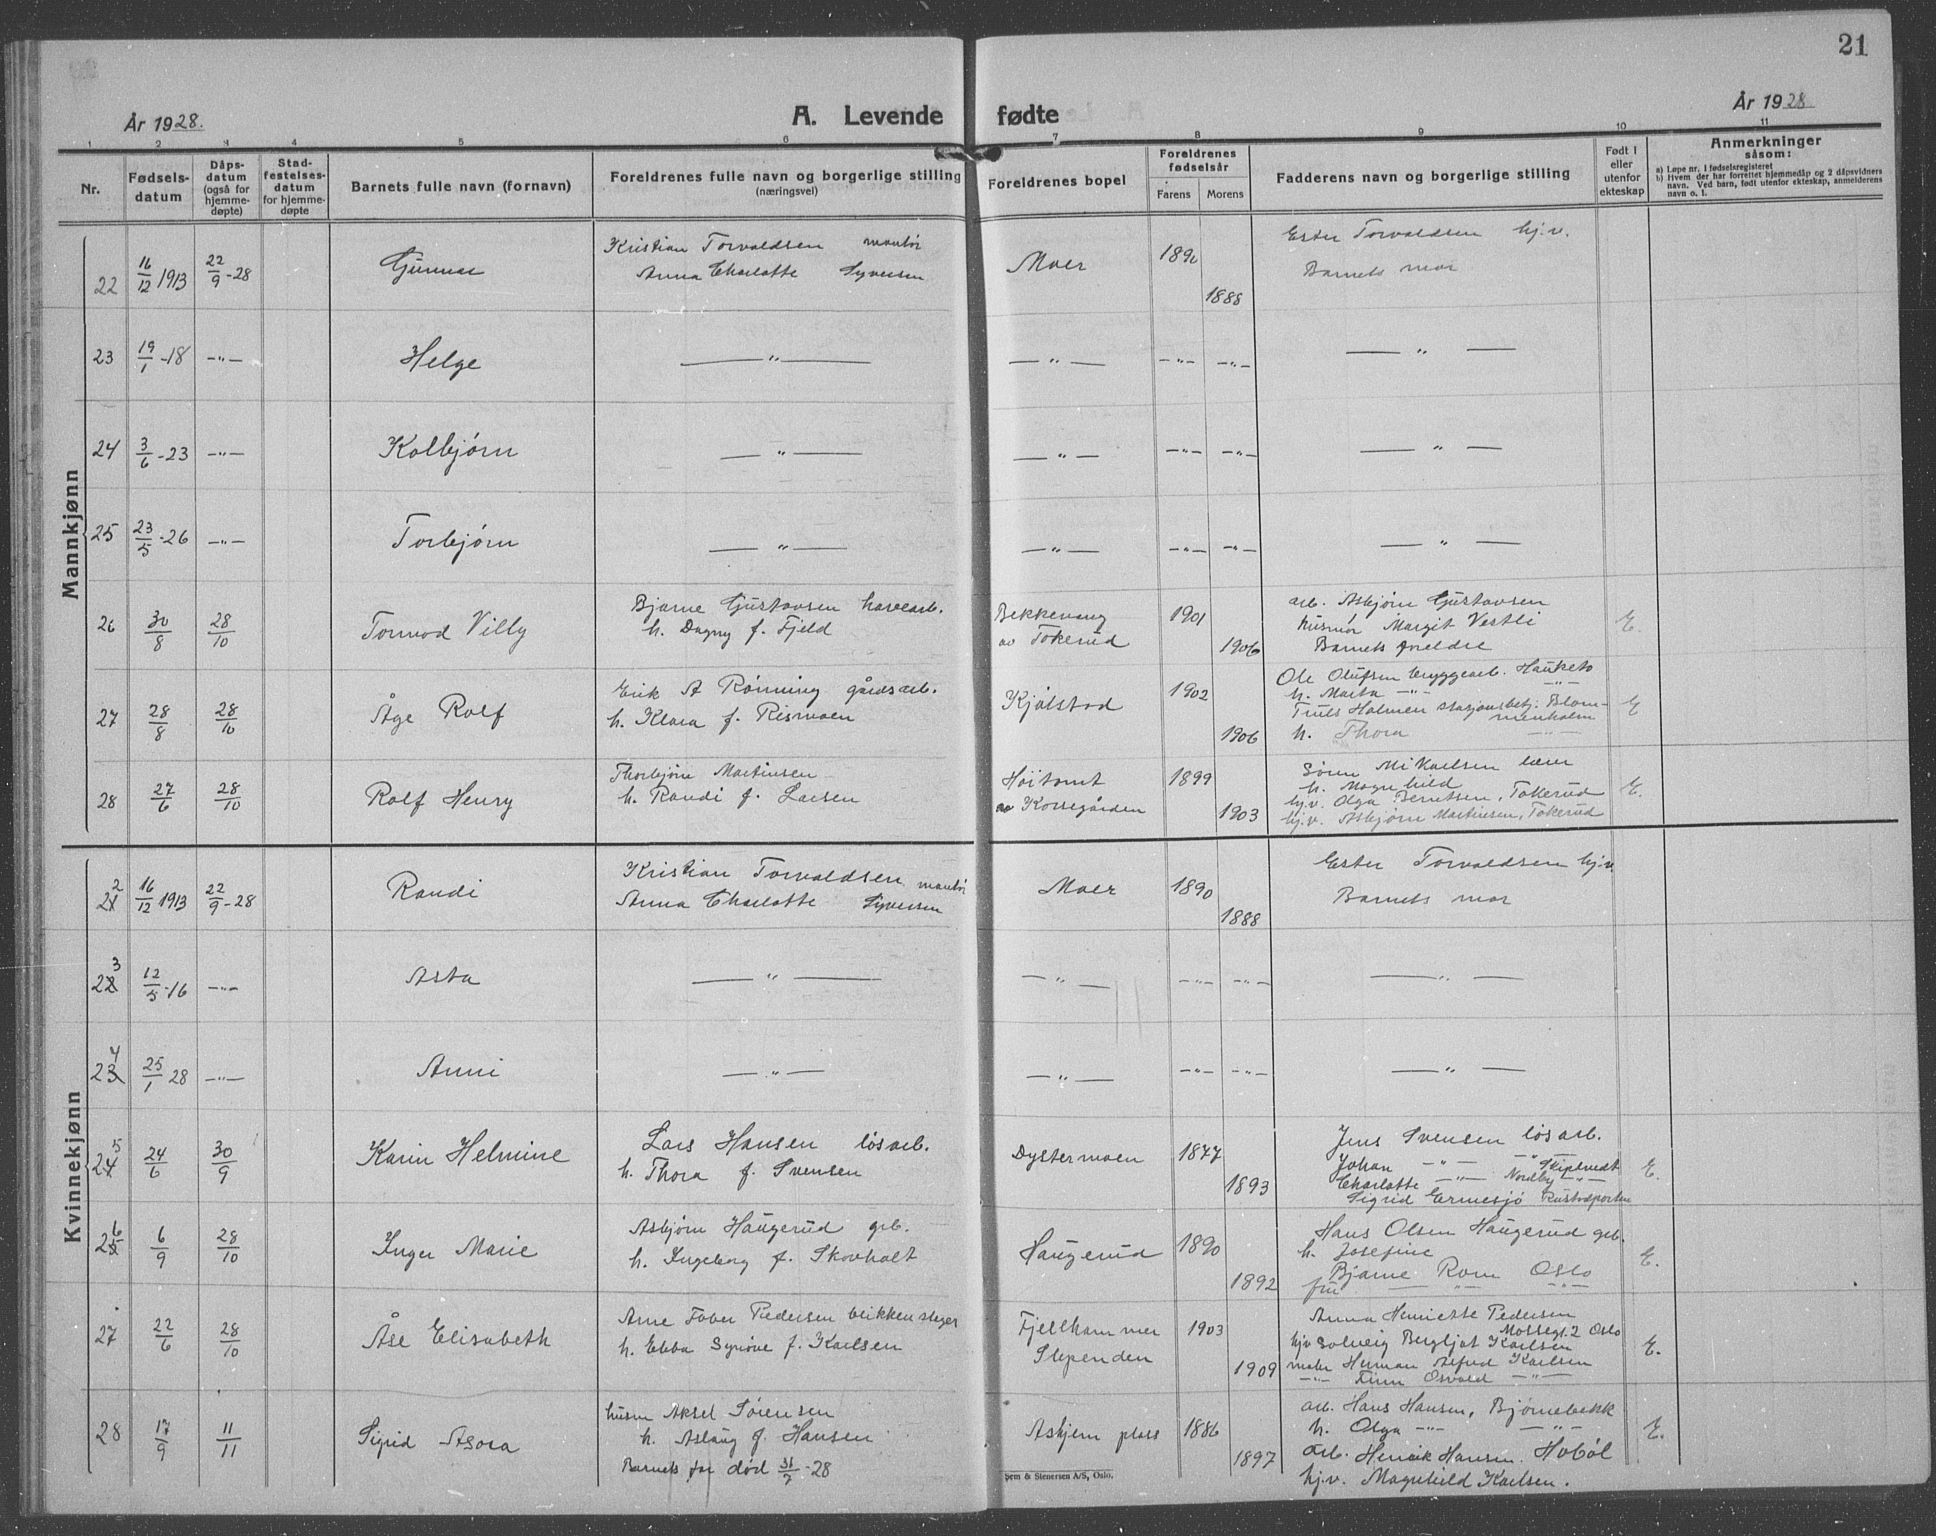 21
År 1928.
A. Levende fødte
År 1928
1 2 3 4 5 6 7 8 9 10 11
Nr.
Fødselsdatum
Dåpsdatum (også for hjemmedøpte)
Stadfestelsesdatum for hjemmedøpte
Barnets fulle navn (fornavn)
Foreldrenes fulle navn og borgerlige stilling (næringsvei)
Foreldrenes bopel
Foreldrenes fødselsår
Farens Morens
Fadderens navn og borgerlige stilling
Født i eller utenfor ekteskap
Anmerkninger såsom:
a) Løpe nr. i fødselsregisteret
b) Hvem der har forrettet hjemmedåp og 2 dåpsvidners navn. Ved barn, født utenfor ekteskap, anmelderens navn o. l.
Mannkjønn
22 16/12 1913 22/9-28 Gunnar Kristian Torvaldsen montør Moer 1890 Ester Torvaldsen hj.v.
Anna Charlotte Syversen 1888 Barnets mor
23 19/1-18 -"- Helge -"- -"- -"- -"- -"-
24 3/6-23 -"- Kolbjørn -"- -"- -"- -"- -"-
25 23/5-26 -"- Torbjørn -"- -"- -"- -"- -"-
26 30/8 28/10 Tormod Villy Bjarne Gustavsen havearb. Bekkevang 1901 arb. Asbjørn Gustavsen E.
h. Dagny f. Fjeld av Tokerud 1906 husmor Margit Vestli
Barnets foreldre
27 28/8 28/10 Åge Rolf Erik A Rønning gårdsarb. Kjølstad 1902 Ole Olufsen bryggearb. Hauketo E
h. Klara f. Rismoen 1906 h. Marta -"- -"-
Truls Holmen stasjonsbetj. Blommenholm
h. Thora -"-
28 27/6 28/10 Rolf Henry Thorbjørn Martinsen Høitomt 1899 Søren Mikaelsen E.
h. Randi f. Larsen av Korsegården 1903 h. Magnhild
hj.v. Olga Berntsen, Tokerud
hj.v. Asbjørn Martinsen, Tokerud
Kvinnekjønn
22 16/12 1913 22/9-28 Randi Kristian Torvaldsen montør Moer 1890 Ester Torvaldsen hj.v.
Anna Charlotte Syversen 1888 Barnets mor
23 12/5-16 -"- Asta -"- -"- -"- -"- -"-
24 25/1 28 -"- Anni -"- -"- -"- -"- -"-
25 24/6 30/9 Karin Helmine Lars Hansen løsarb. Dystermoen 1877 Jens Svensen løsarb. E.
h. Thora f. Svensen 1893 Johan -"- -"- Skiptvedt
Charlotte -"- Nordby -"-
Sigrid Ermesjø Rustadporten
26 6/9 28/10 Inger Marie Asbjørn Haugerud grb. Haugerud 1890 Hans Olsen Haugerud grb. E.
h. Ingeborg f. Skovholt 1892 h. Josefine
Bjarne Rom Oslo
fru -"- -"-
27 22/6 28/10 Åse Elisabeth Arne Tober Pedersen blikkenslager Fjellhammer 1903 Anna Henriette Pedersen E.
h. Ebba Synøve f. Karlsen Slependen 1909 Mossegt. 2 Oslo
hjv Solveig Bergljot Karlsen
maler Herman Alfred Karlsen
-"- Finn Osvald -"-
28 17/9 11/11 Sigrid Asora husm Aksel Sørensen Askjem plass 1886 arb. Hans Hansen, Bjørnebekk E.
h. Aslaug f. Hansen 1897 h. Olga -"- -"-
Barnets far død 31/7-28 arb. Henrik Hansen. Hobøl
hj.v. Magnhild Karlsen.
Sem & Stenersen A/S, Oslo.